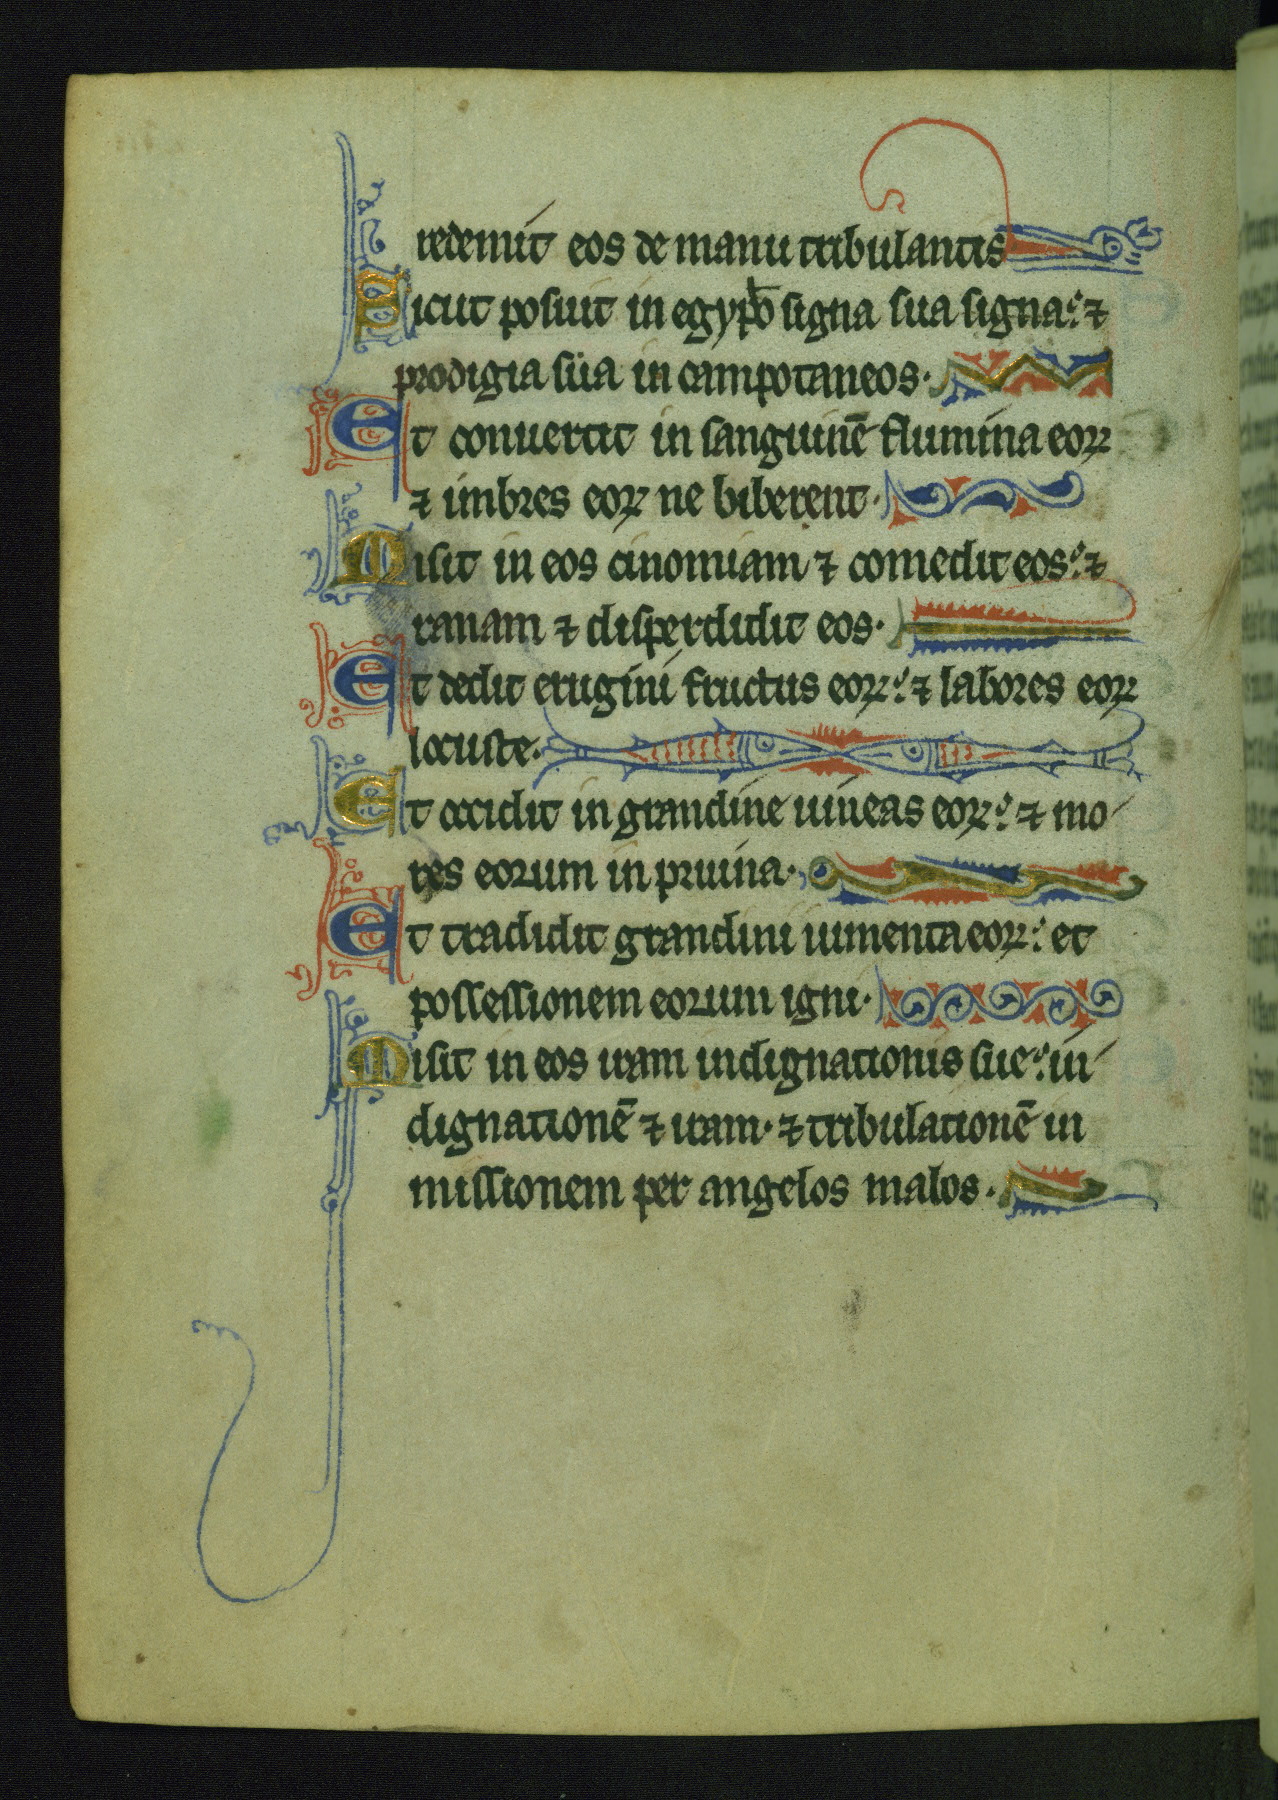 redemit eos de manu tribulantis
Sicut posuit in egypto signa sua signa: ⁊
prodigia sua in campo taneos.
Et conuertit in sanguinē flumina eoꝝ
⁊ imbres eoꝝ ne biberent.
Misit in eos cinomiam ⁊ comedit eos: ⁊
ranam ⁊ disperdidit eos.
Et dedit erugini fructus eoꝝ: ⁊ labores eoꝝ
locuste.
Et occidit in grandine uineas eoꝝ: ⁊ mo
res eorum in pruina.
Et tradidit grandini iumenta eoꝝ: et
possessionem eorum igni.
Misit in eos iram indignationis sue: in
dignationē ⁊ iram. ⁊ tribulationē in
missionem per angelos malos.